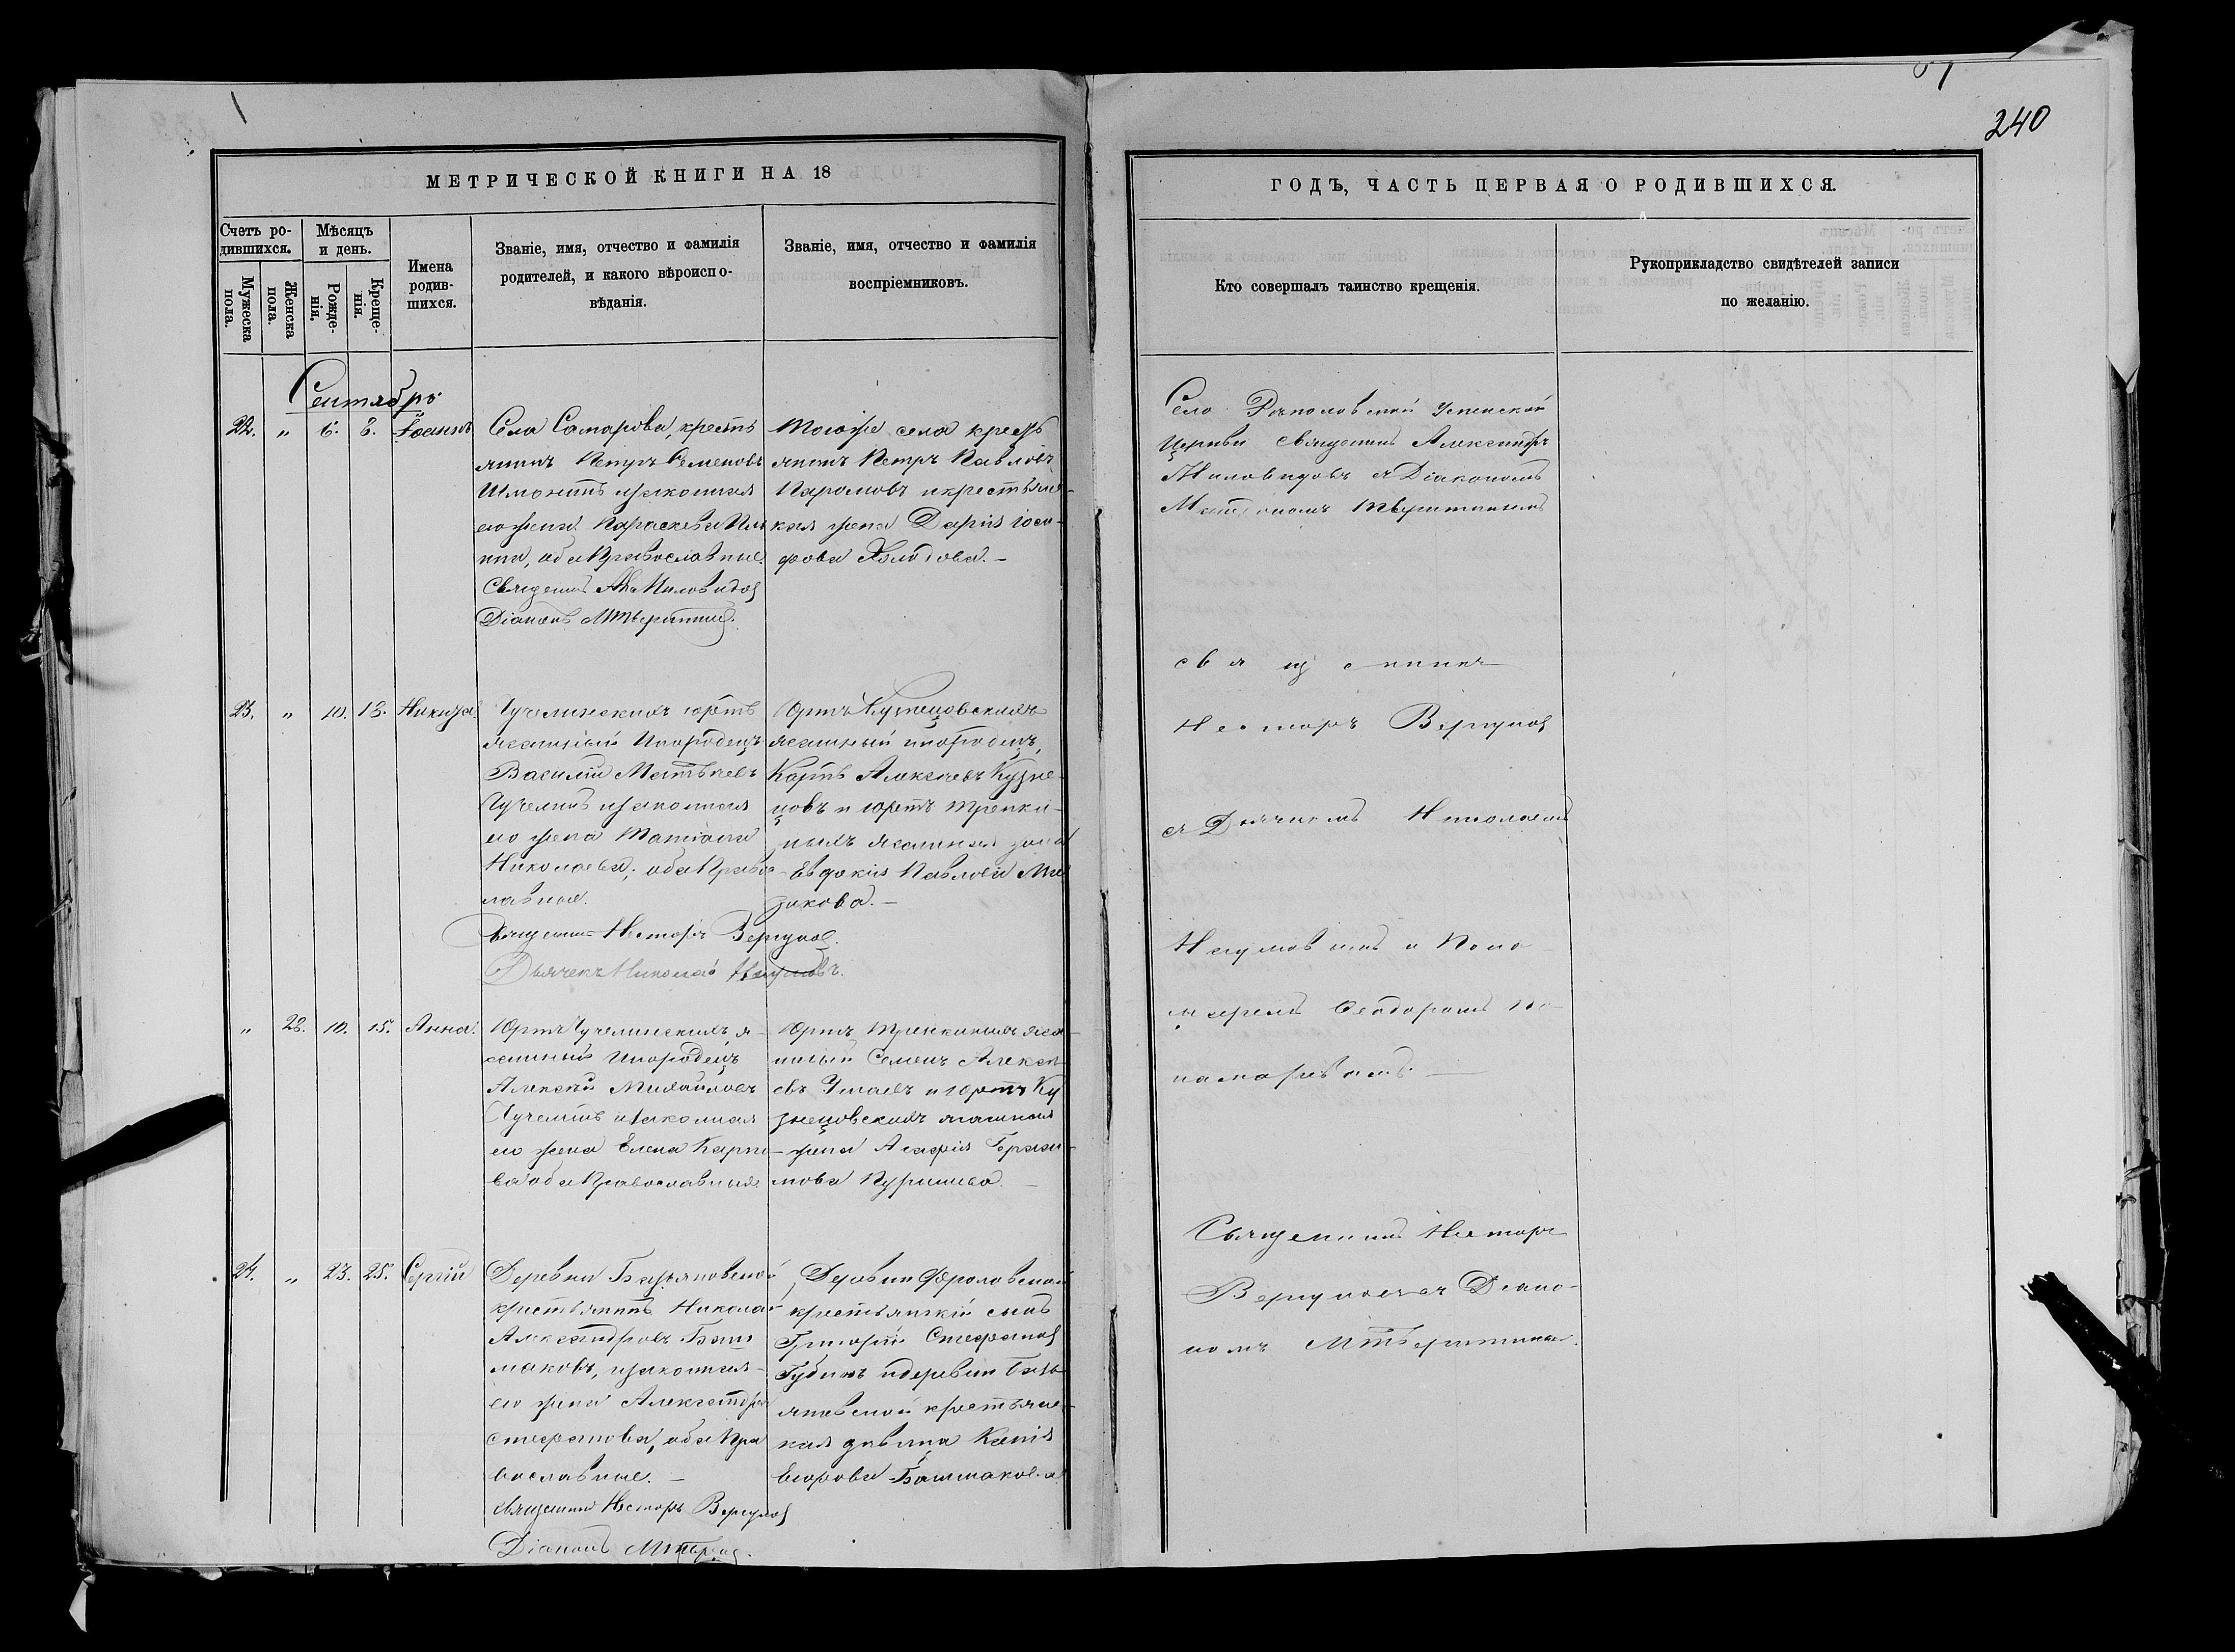 240
МЕТРИЧЕСКОЙ КНИГИ НА 18
ГОДЪ, ЧАСТЬ ПЕРВАЯ О РОДИВШИХСЯ.
Счетъ ро-
дившихся.
Мужеска
пола.
Женска
пола.
Мѣсяцъ
и день.
Рожде-
нія.
Креще-
нія.
Имена
родив-
шихся.
Званіе, имя, отчество и фамилія
родителей, и какого вѣроиспо-
вѣданія.
Званіе, имя, отчество и фамилія
воспріемниковъ.
Кто совершалъ таинство крещенія.
Рукоприкладство свидѣтелей записи
по желанію.
Сентябрь
22. „ 6. 8. Іоаннъ
Села Самарова, кресть
янинъ Петръ Семеновъ
законная
его жена Параскева
на, оба Православные.
Священникъ Миловидов
Діаконъ М Тверитин
Тогоже села кресть
янинъ Петръ Павловъ
и крестьянс-
кая жена Дарія Іоси-
фова
Село Успенской
Церкви священникъ Александръ
Миловидовъ съ Діакономъ
Тверитинымъ
23. „ 10. 13. Никита.
юртъ
ясашный Инородецъ
Василій Матвѣевъ
законная
его жена Татіана
Николаева, оба Правос
лавные.
Священникъ Несторъ Вергунов
Дьячекъ Николай Наумовъ.
Юртъ Кузнецовскихъ
ясашный инородецъ,
Карпъ Алексѣевъ Кузне-
цовъ и юртъ Тренки-
ныхъ ясашная жена
Евдокія Павлова
зикова.
священникъ
Несторъ Вергунов
съ Дьячкомъ Николаемъ
Наумовымъ и Поно
маремъ Ѳеодоромъ По-
номаревымъ.
„ 23. 10. 15. Анна.
Юртъ я-
сашный Инородецъ
Алексѣй Михайловъ
законная
его жена Елена Карпо-
ва оба Православныя.
Юртъ Тренкиныхъ яса-
шный Семенъ Алексѣ
евъ и юртъ Ку
знецовскихъ ясашная
жена Агафія Гераси-
мова
24. „ 23. 25. Сергій
Деревни Базьяновской
крестьянинъ Николай
Александровъ Баш
маковъ, законная
его жена Александра
Стефанова, оба Пра
вославные.
Священникъ Несторъ Вергунов
Діаконъ М Тверит.
Деревни Фроловской
крестьянскій сынъ
Григорій Стефанов
Губинъ и деревни Базь
яновской крестьянс-
кая дѣвица Ксенія
Егорова Башмакова
Священникъ Несторъ
Вергуновъ съ Діако-
номъ М Тверитинымъ.